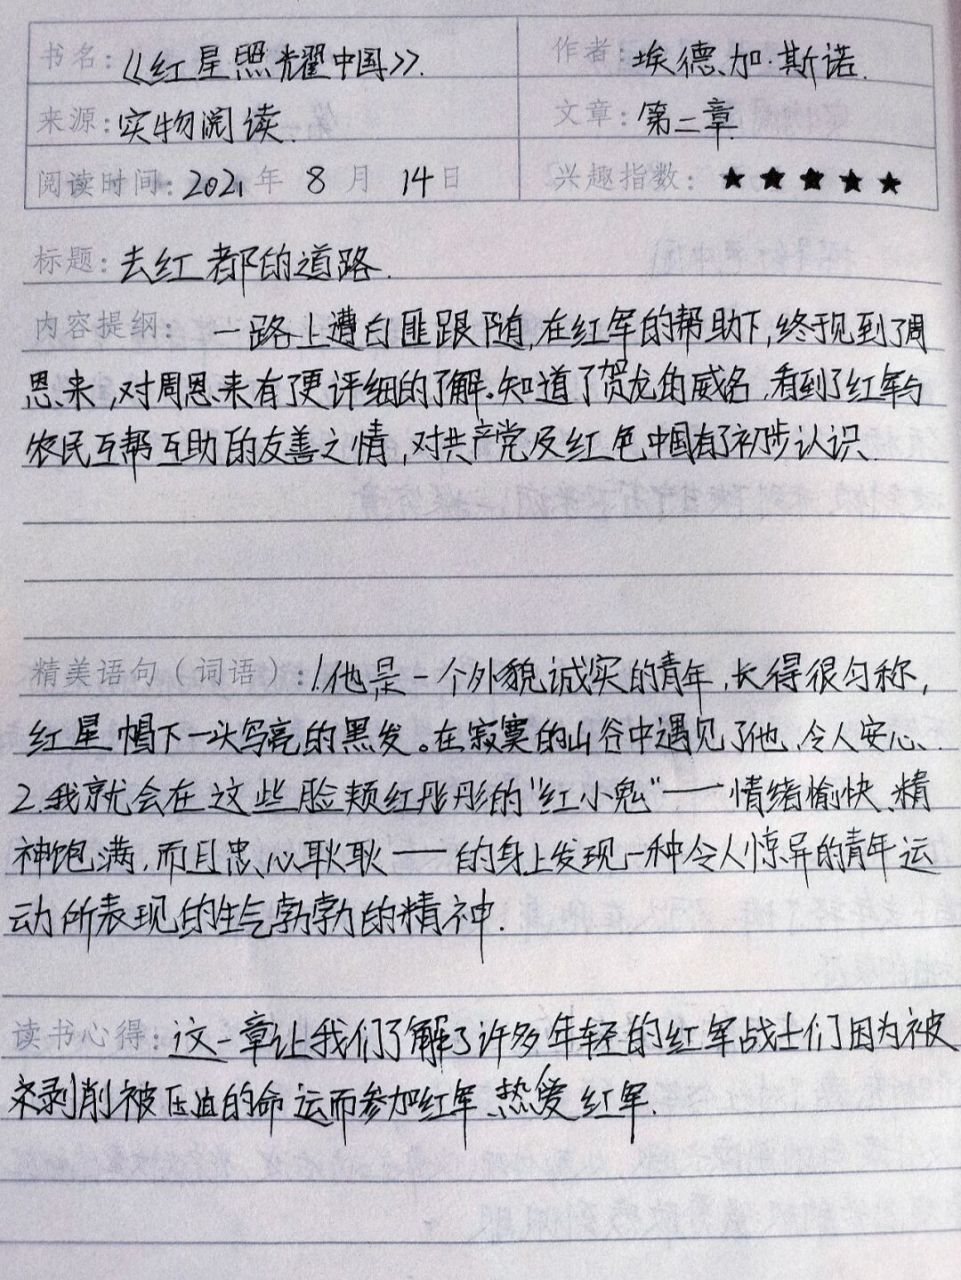 书名：《红星照耀中国》. 作者：埃德加·斯诺.
来源：实物阅读. 文章：第二章.
阅读时间：2021年 8月 14日 兴趣指数：★★★★★
标题：去红都的道路.
内容提纲：一路上遭白匪跟随,在红军的帮助下,终于见到了周
恩来,对周恩来有了更详细的了解。知道了贺龙的威名,看到了红军与
农民互帮互助的友善之情,对共产党及红色中国有了初步认识.
精美语句（词语）：1.他是一个外貌诚实的青年,长得很匀称,
红星帽下一头乌亮的黑发。在寂寞的山谷中遇见了他,令人安心.
2.我就会在这些脸颊红彤彤的“红小鬼”——情绪愉快、精
神饱满,而且忠心耿耿——的身上发现一种令人惊异的青年运
动所表现的生气勃勃的精神.
读书心得：这一章让我们了解了许多年轻的红军战士们因为被
剥削被压迫的命运而参加红军、热爱红军.